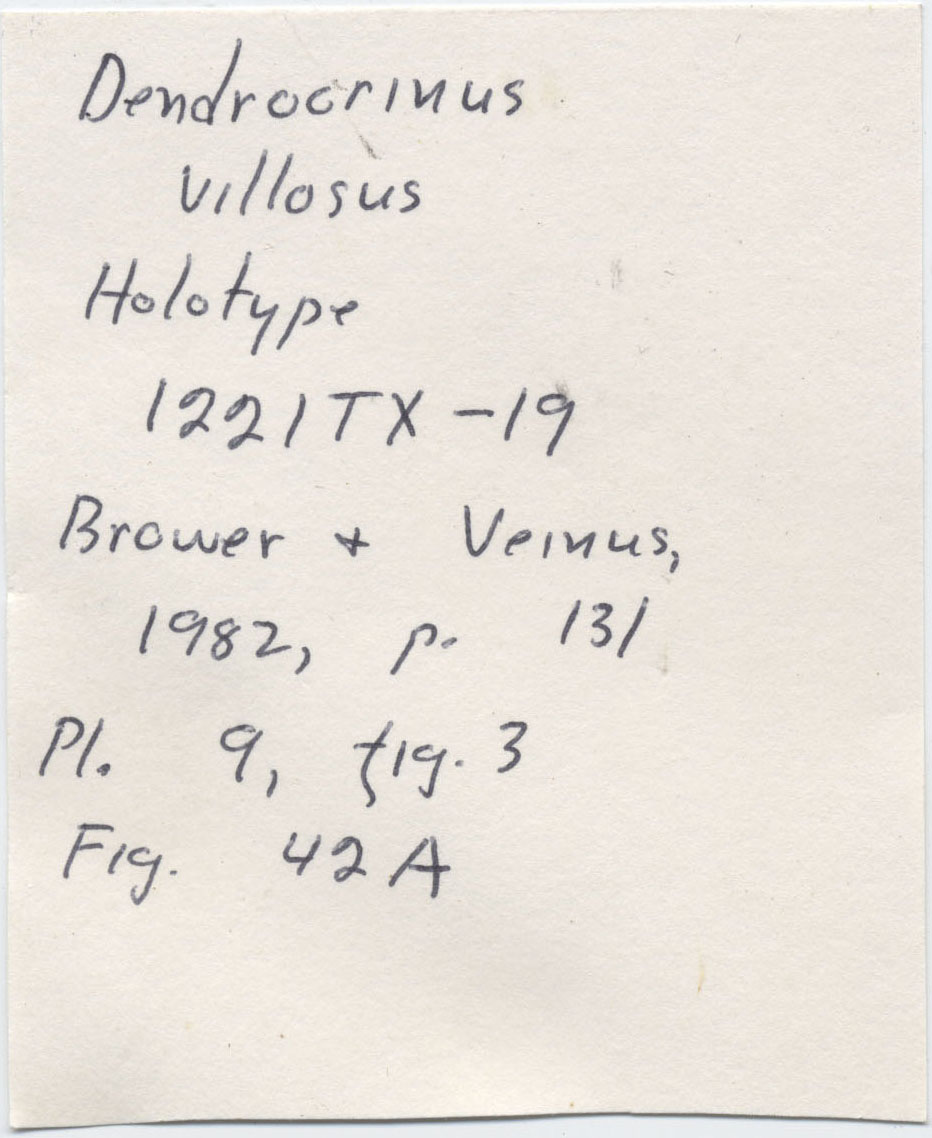 Dendrocrinus
villosus
Holotype
1221TX-19
Brower + Veinus,
1982, p. 131
Pl. 9, fig. 3
Fig. 42A